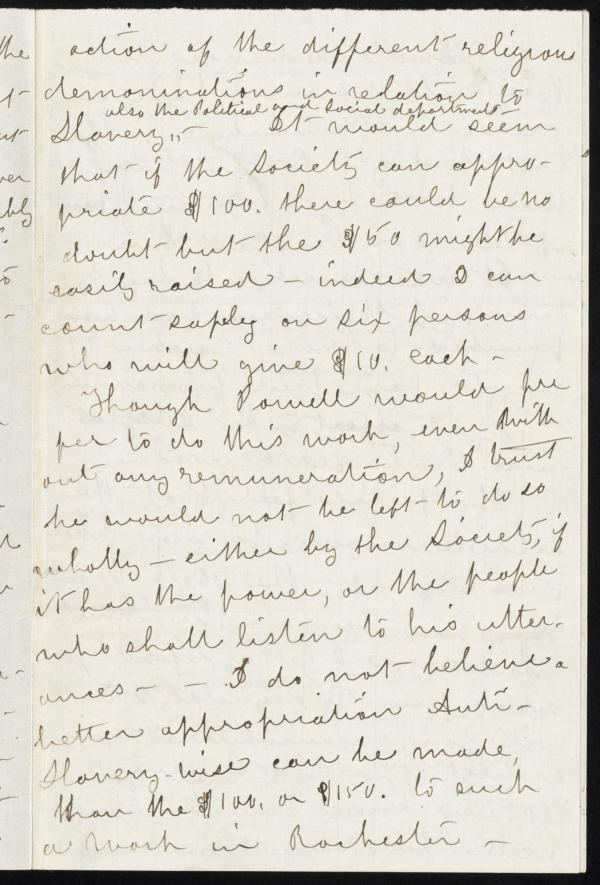 action of the different religious
denominations in relation to
also the Political and Social departments
Slavery,,– It would seem
that if the Society can appro-
priate $100. there could be no
doubt but the $50 might be
easily raised – indeed I can
count safely on six persons
who will give $10. each –
Though Powell would pre
fer to do this work, even with
out any remuneration, I trust
he would not be left to do so
wholly – either by the Society, if
it has the power, or the people
who shall listen to his utter-
ances – – I do not believe a
better appropriation Anti-
Slavery-wise can be made,
than the $100, or $150. to such
a work in Rochester –
the
ver
ably